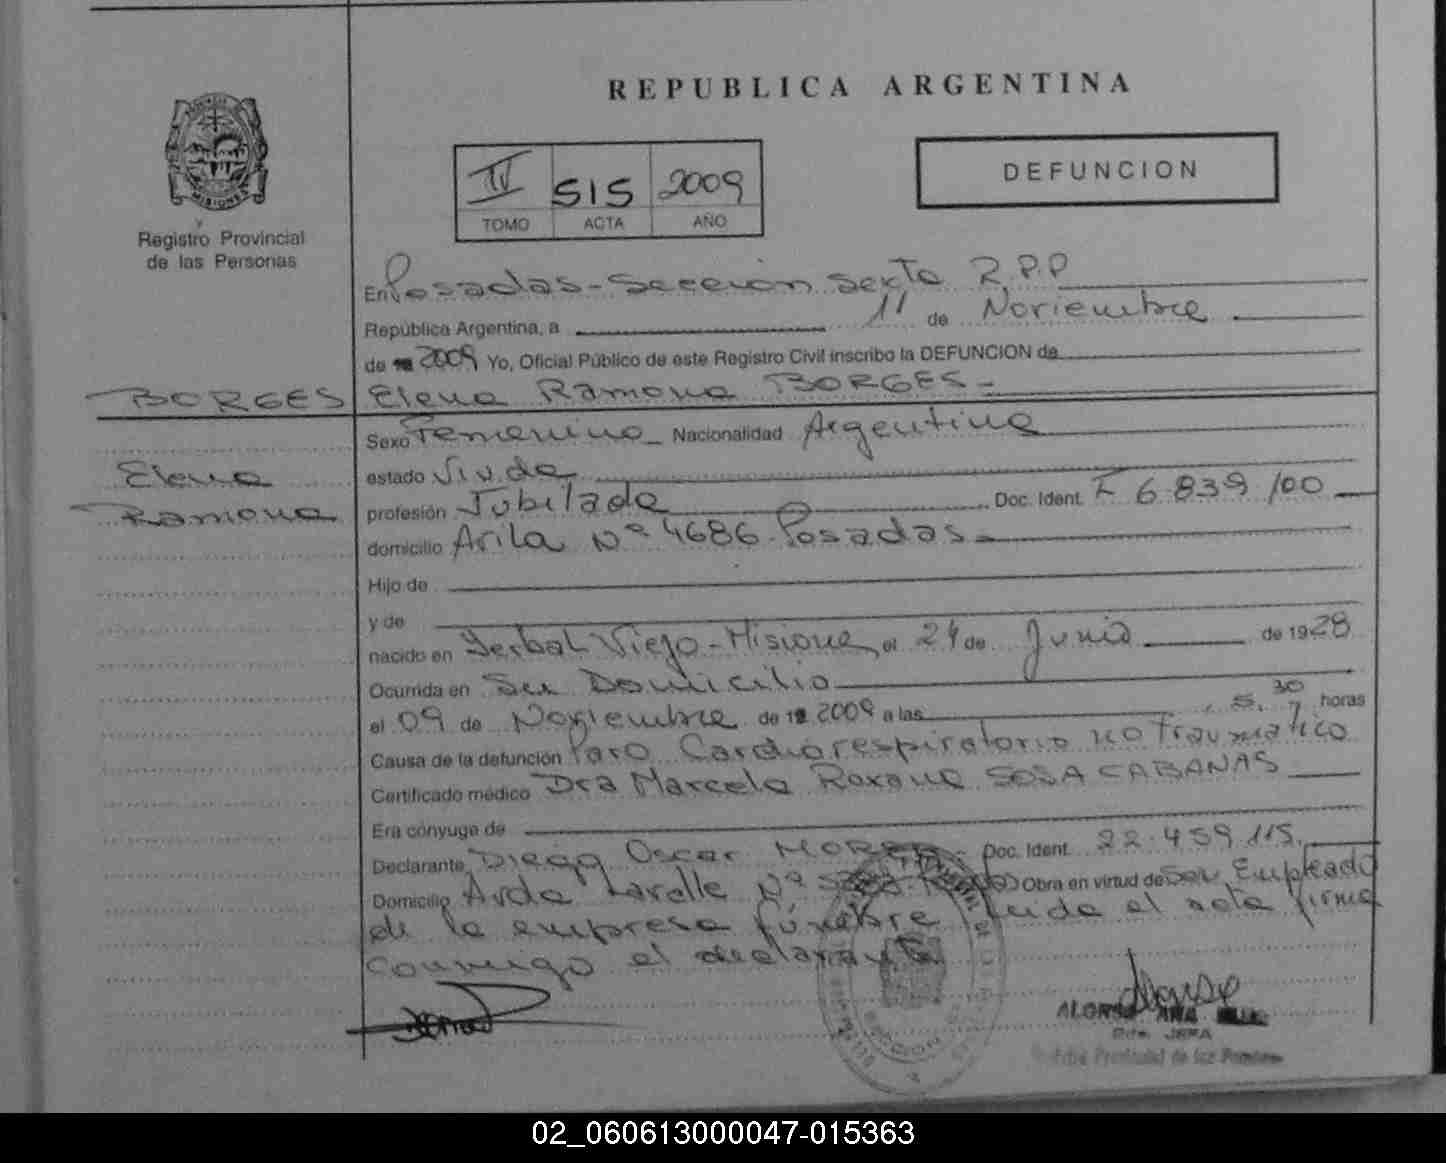 REPUBLICA ARGENTINA
MISIONES
Registro Provincial
de las Personas
IV 515 2009
TOMO ACTA AÑO
DEFUNCION
En Posadas - Sección Sexta R.P.P
República Argentina, a 11 de Noviembre
de 2009 Yo, Oficial Público de este Registro Civil inscribo la DEFUNCION de
BORGES Elena Ramona BORGES.-
Sexo Femenino Nacionalidad Argentina
Elena estado Viuda
Ramona profesión Jubilada Doc. Ident. F 6 839 100
domicilio Avila Nº 4686 - Posadas.-
Hijo de
y de
nacido en Yerbal Viejo - Misiones el 24 de Junio de 1928
Ocurrida en Su Domicilio
el 09 de Noviembre de 2009 a las 5,30 horas
Causa de la defunción Paro Cardiorespiratorio no Traumático
Certificado médico Dra Marcela Roxana SOSA CABANAS
Era cónyuge de
Declarante Diego Oscar Doc. Ident. 22.459.115.
Domicilio Avda Lavalle Nº Obra en virtud de Ser Empleado
de la empresa fúnebre leida el acta firma
conmigo el declarante
ALONSO ANA
JEFA
Provincial de las Personas
02_060613000047-015363